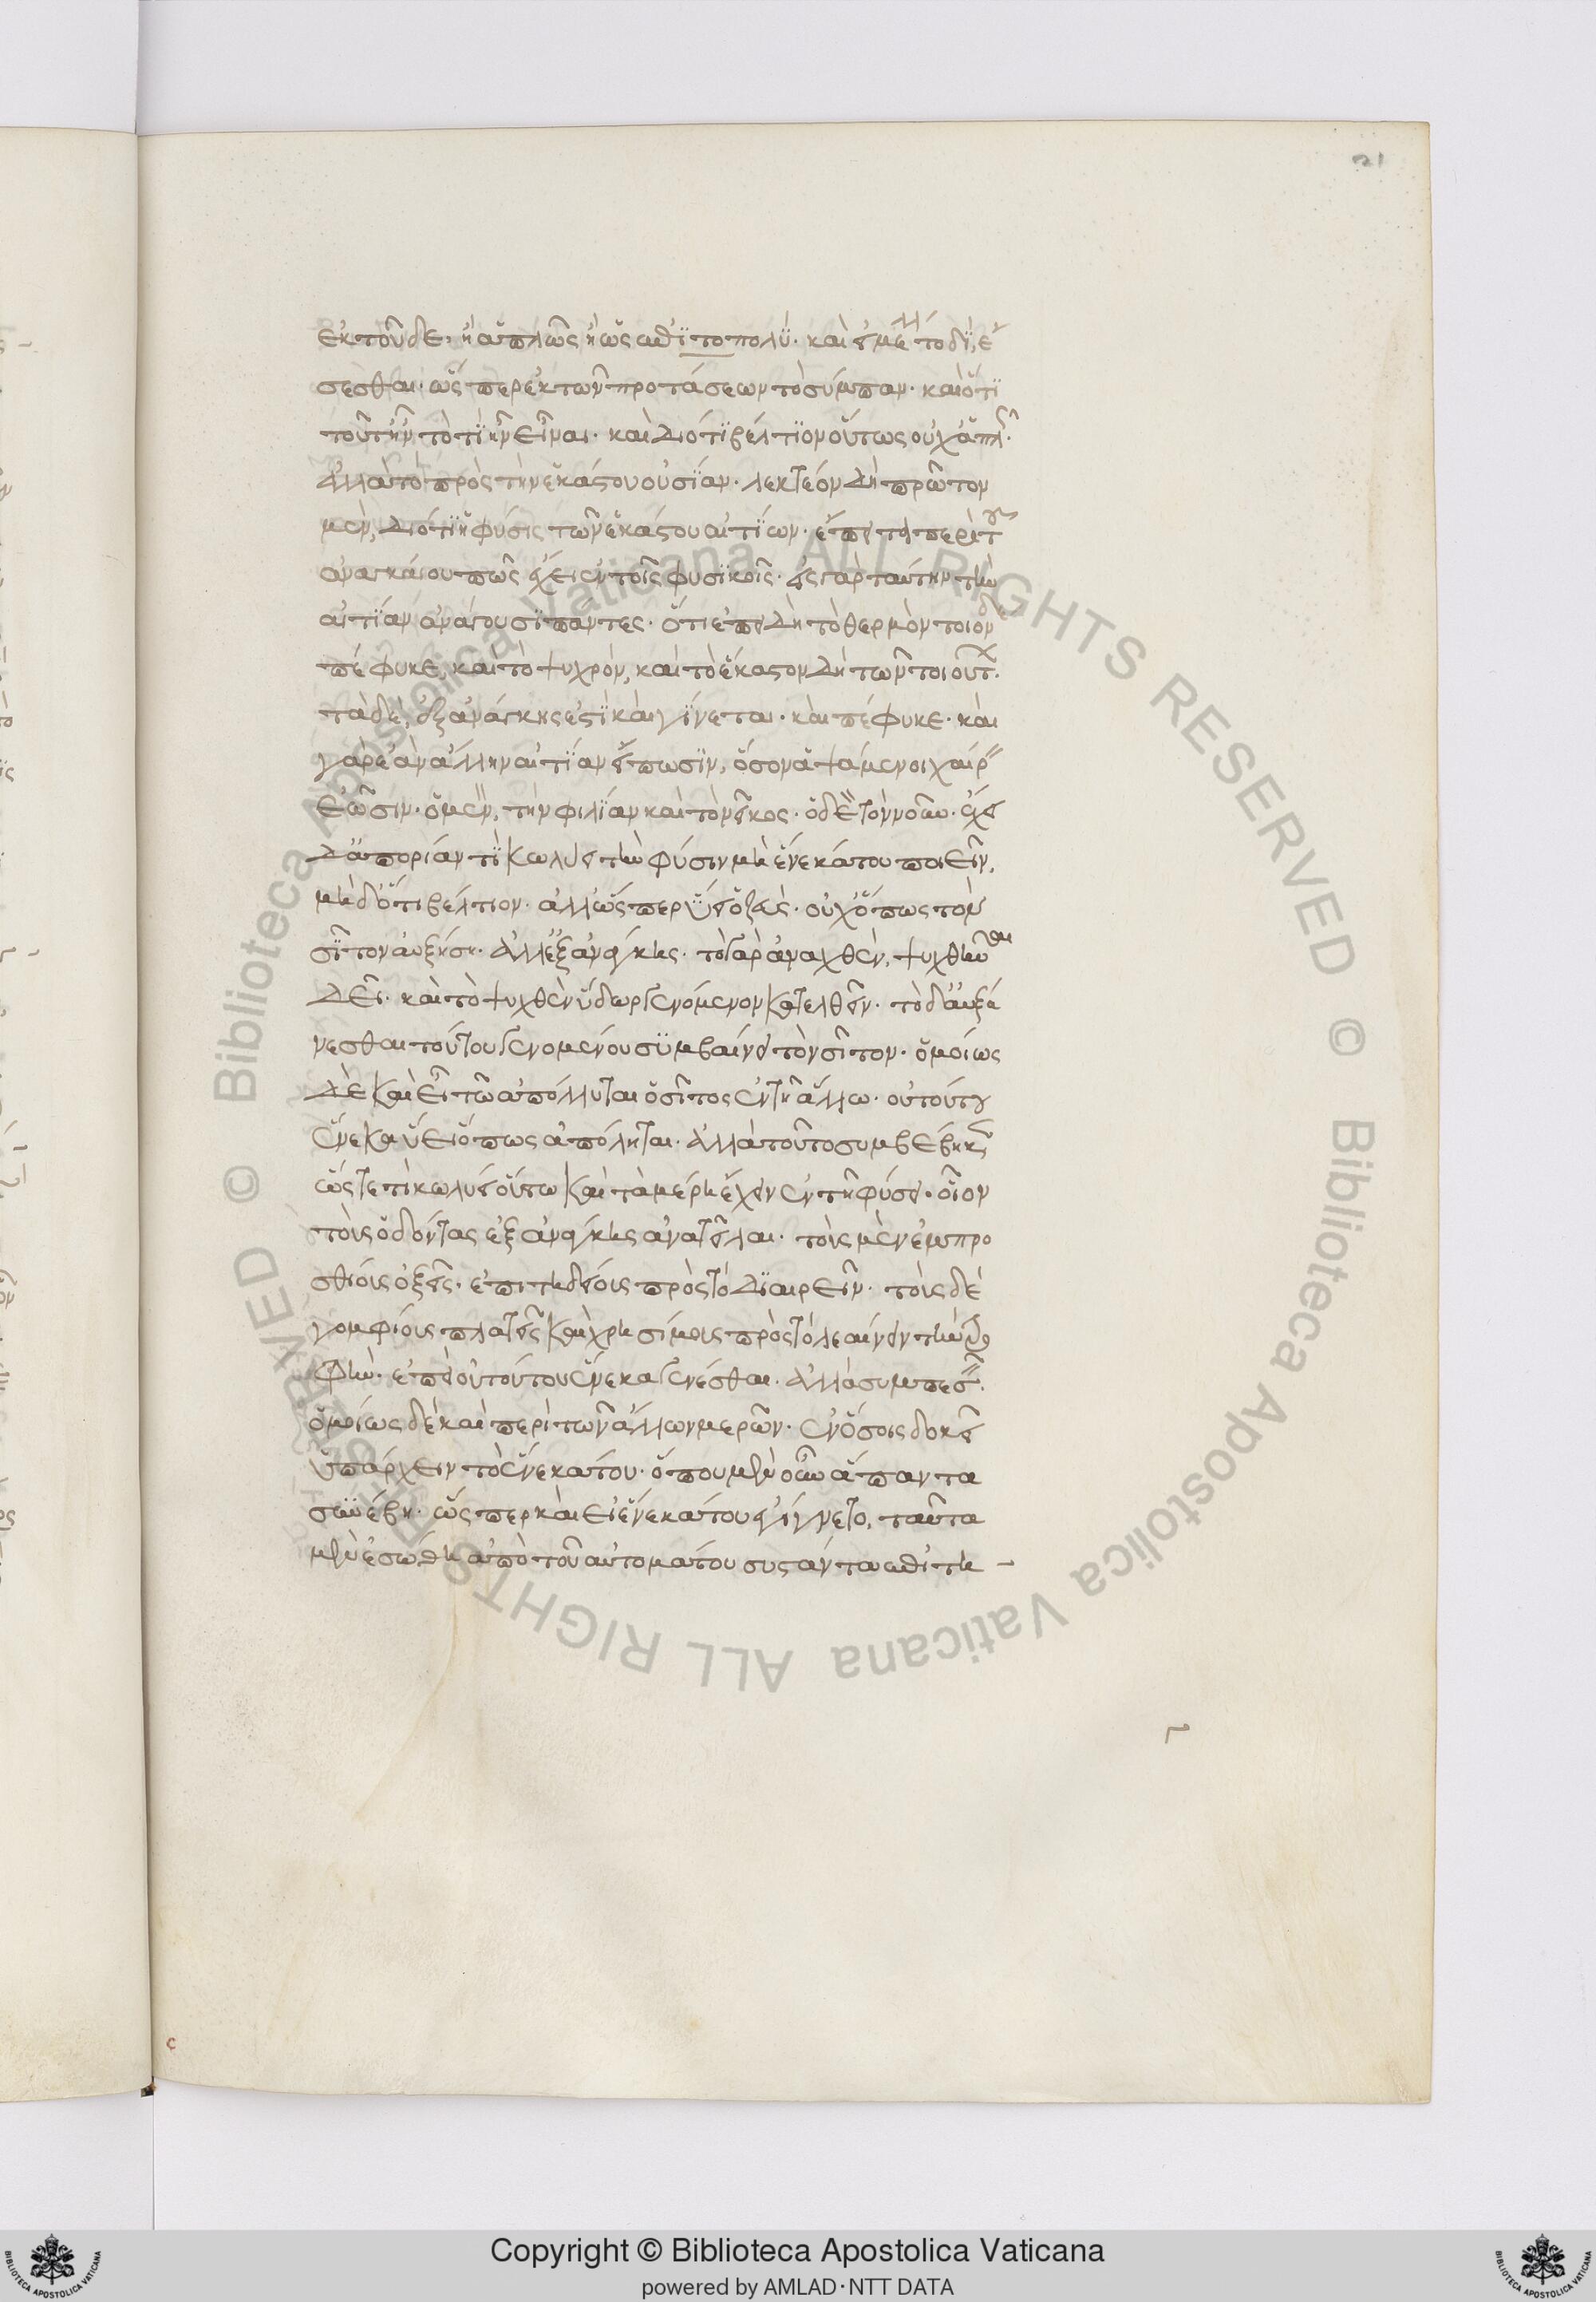 21
ἐκ τοῦδε, ἢ ἁπλῶς ἢ ὡς ἐπὶ τὸ πολύ. καὶ εἰ μέλλει τοδὶ ἔ
σεσθαι. ὥσπερ ἐκ τῶν προτάσεων τὸ συμπέρασμα. καὶ ὅτι
τοῦτ' ἦν τὸ τί ἦν εἶναι. καὶ διότι βέλτιον οὕτως οὐχ ἁπλ.
ἀλλὰ τὸ πρὸς τὴν ἑκάστου οὐσίαν. λεκτέον δὴ πρῶτον
μὲν, διότι ἡ φύσις τῶν ἕνεκά του αἰτίων. ἔπειτα περὶ τοῦ
ἀναγκαίου πῶς ἔχει ἐν τοῖς φυσικοῖς. εἰς γὰρ ταύτην τὴν
αἰτίαν ἀνάγουσι πάντες. ὅτι ἐπειδὴ τὸ θερμὸν τοιονδὶ
πέφυκε, καὶ τὸ ψυχρόν, καὶ τὸ ἕκαστον δὴ τῶν τοιούτ.
ταδὶ ἐξ ἀνάγκης ἐστὶ καὶ γίνεται. καὶ πέφυκε. καὶ
γὰρ ἐὰν ἄλλην αἰτίαν εἴπωσιν, ὅσον ἁψάμενοι χαίρειν
ἐῶσιν. ὁ μὲν, τὴν φιλίαν καὶ τὸ νεῖκος. ὁ δὲ τὸν νοῦν. ἔχει
δ' ἀπορίαν τί κωλύει τὴν φύσιν μὴ ἕνεκά του ποιεῖν,
μὴ δ' ὅτι βέλτιον. ἀλλ' ὥσπερ ὕει ὁ ζεὺς. οὐχ ὅπως τὸν
σῖτον αὐξήσῃ. ἀλλ' ἐξ ἀνάγκης. τὸ γὰρ ἀναχθὲν, ψυχθῆναι
δεῖ. καὶ τὸ ψυχθὲν ὕδωρ γενόμενον κατελθεῖν. τὸ δ' αὐξά
νεσθαι τούτου γενομένου συμβαίνει τὸν σῖτον. ὁμοίως
δὲ καὶ εἴ τῳ ἀπόλλυται ὁ σῖτος ἐν τῇ ἅλῳ. οὐ τούτου
ἕνεκα ὕει ὅπως ἀπόληται. ἀλλὰ τοῦτο συμβέβηκεν
ὥστε τί κωλύει οὕτω καὶ τὰ μέρη ἔχειν ἐν τῇ φύσει. οἷον
τοὺς ὀδόντας ἐξ ἀνάγκης ἀνατεῖλαι. τοὺς μὲν ἐμπρο
σθίους ὀξεῖς. ἐπιτηδείους πρὸς τὸ διαιρεῖν. τοὺς δὲ
γομφίους πλατεῖς καὶ χρησίμους πρὸς τὸ λεαίνειν τὴν τρο
φὴν. ἐπεὶ οὐ τούτου ἕνεκα γενέσθαι. ἀλλὰ συμπεσεῖν.
ὁμοίως δὲ καὶ περὶ τῶν ἄλλων μερῶν. ἐν ὅσοις δοκεῖ
ὑπάρχειν τὸ ἕνεκά του. ὅπου μὲν οὖν ἅπαντα
συνέβη. ὥσπερ κἂν εἰ ἕνεκά του ἐγίγνετο, ταῦτα
μὲν ἐσώθη ἀπὸ τοῦ αὐτομάτου συστάντα ἐπιτη
c
© Biblioteca Apostolica Vaticana ALL RIGHTS RESERVED © Biblioteca Apostolica Vaticana ALL RIGHTS RESERVED
Copyright © Biblioteca Apostolica Vaticana
powered by AMLAD·NTT DATA
BIBLIOTECA APOSTOLICA VATICANA
BIBLIOTECA APOSTOLICA VATICANA